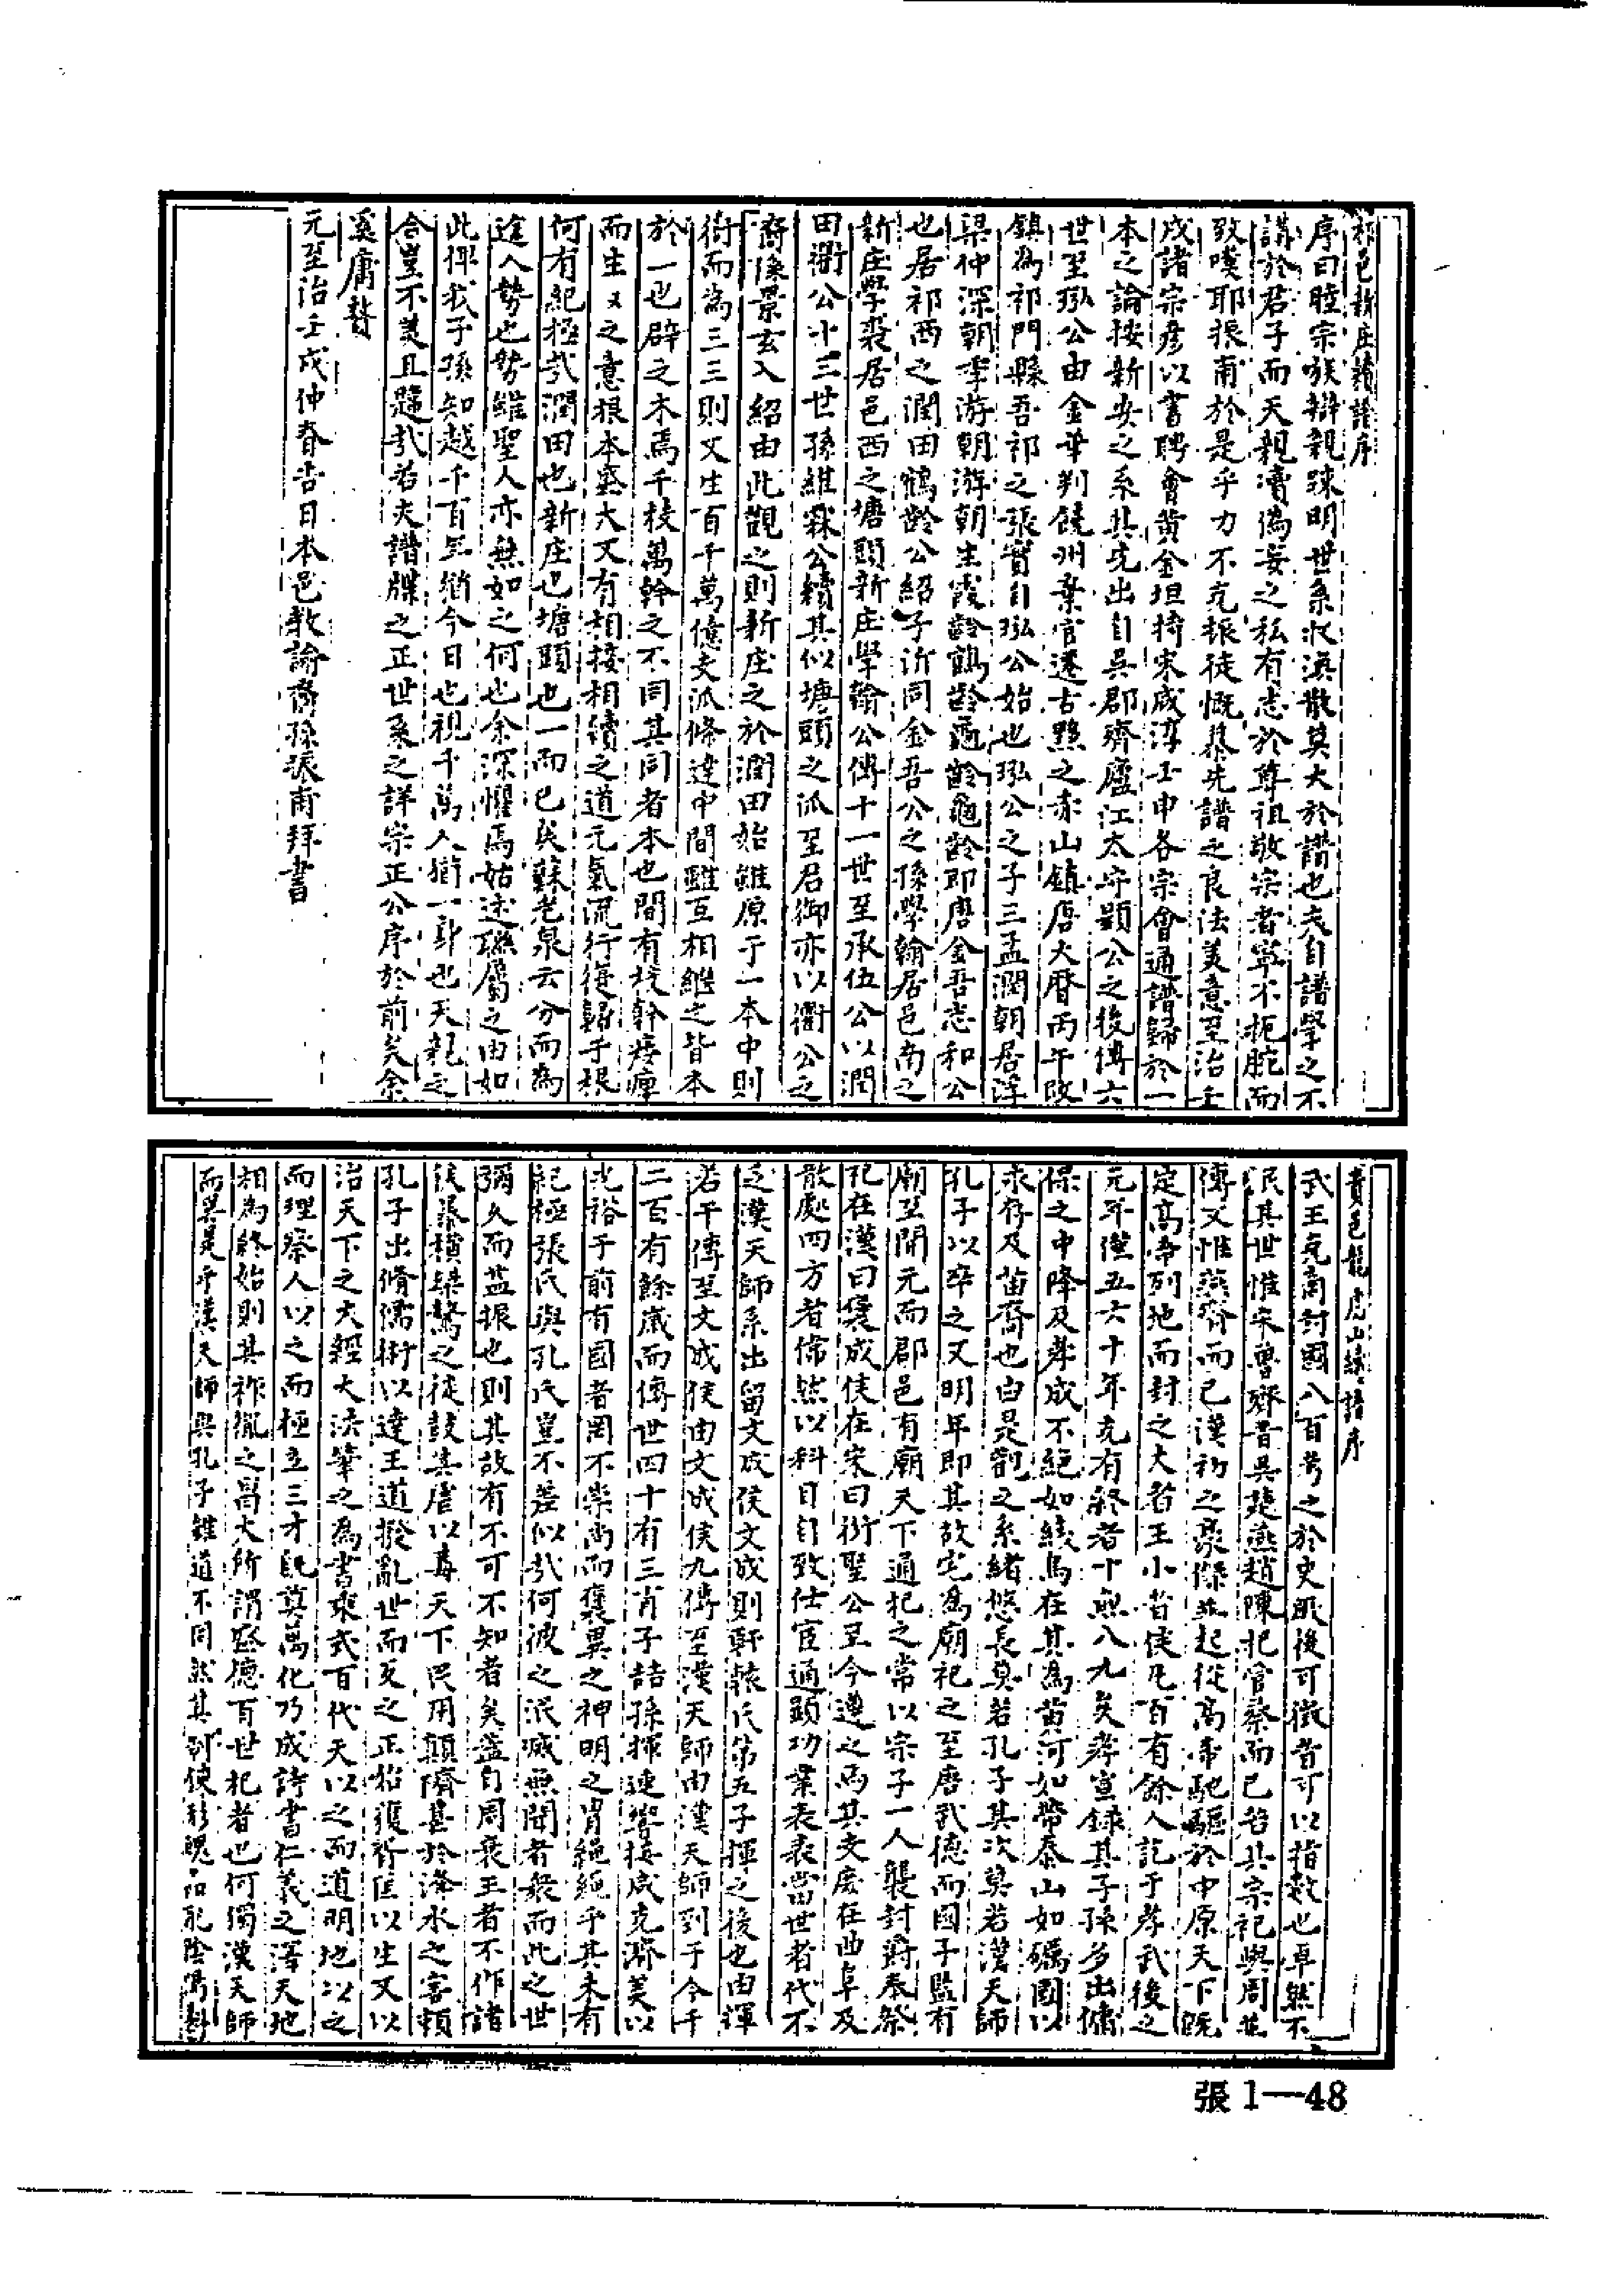 祁邑新庄續譜序
序曰睦宗族辯親踈明世系收渙散莫大於譜也夫自譜學之不
講於君子而天親瀆偽妄之私有志於尊祖敬宗者寧不扼腕而
致嘆耶振甫於是乎力不克振徒慨慕先譜之良法美意至治壬
戌諸宗彥以書聘會黃金坦持宋咸淳壬申各宗會通譜歸於一
本之論按新安之系其先出自吳郡齊廬江太守顯公之後傳六
世至弘公由金華判饒州棄官遷古黟之赤山鎮唐大曆丙午改
鎮為祁門縣吾祁之張實自弘公始也弘公之子三孟潤朝居浮
梁仲深朝季游朝游朝生霞齡鶴齡龜齡即唐金吾志和公
也居祁西之潤田鶴齡公紹子沂同金吾公之孫學翰居邑南之
新庄學裘居邑西之塘頭新庄學翰公傳十一世至承伍公以潤
田衢公十三世孫維霖公續其似塘頭之派至君御亦以衢公之
裔孫景玄入紹由此觀之則新庄之於潤田始雖原于一本中則
衍而為三三則又生百千萬億支派條達中間雖互相繼之皆本
於一也辟之木焉千枝萬幹之不同其同者本也間有枝幹痿痺
而生又之意根本盛大又有相接相續之道元氣流行復歸于根
何有紀極哉潤田也新庄也塘頭也一而已矣蘇老泉云分而為
途人勢也勢雖聖人亦無如之何也余深懼焉姑述聯屬之由如
此俾我子孫知越千百年猶今日也視千萬人猶一身也天親之
合豈不美且韙哉若夫譜牒之正世系之詳宗正公序於前矣余
奚庸贅
元至治壬戌仲春吉日本邑教諭裔孫振甫拜書
貴邑龍虎山續譜序
武王克商封國八百考之於史厥後可徵者可以指數也卓然不
泯其世惟宋魯齊晉吳楚燕趙陳杞管蔡而已若其宗祀與周並
傳又惟燕齊而已漢初之豪傑並起從高帝馳驅於中原天下既
定高帝列地而封之大者王小者侯凡百有餘人訖于孝武後之
元年僅五六十年克有終者十無八九矣孝宣錄其子孫多出傭
保之中降及孝成不絕如綫烏在其為黃河如帶泰山如礪國以
永存及苗裔也由是觀之系緒悠長莫若孔子其次莫若漢天師
孔子以卒之又明年即其故宅為廟祀之至唐武德而國子監有
廟至開元而郡邑有廟天下通祀之常以宗子一人襲封爵奉祭
祀在漢曰褒成侯在宋曰衍聖公至今遵之而其支庶在曲阜及
散處四方者儒然以科目自致仕宦通顯功業表表當世者代不
乏漢天師系出留文成侯文成則軒轅氏第五子揮之後也由揮
若干傳至文成侯由文成侯九傳至漢天師由漢天師到于今千
二百有餘歲而傳世四十有三肖子喆孫揮連響接咸克濟美以
光裕于前有國者罔不崇尚而褒異之神明之冑繩繩乎其未有
紀極張氏與孔氏豈不差似哉何彼之泯滅無聞者衆而此之世
彌久而益振也則其故有不可不知者矣蓋自周衰王者不作諸
侯暴橫桀驁之徒鼓其虐以毒天下民用顛隮甚於洚水之害賴
孔子出脩儒術以達王道撥亂世而反之正拾獲胥匡以生又以
治天下之大經大法筆之為書乘式百代天以之而道明地以之
而理察人以之而極立三才既奠萬化乃成詩書仁義之澤天地
相為終始則其祚胤之昌大所謂盛德百世祀者也何獨漢天師
而異是乎漢天師與孔子雖道不同然其制使形魄品配陰陽斟
張1—48